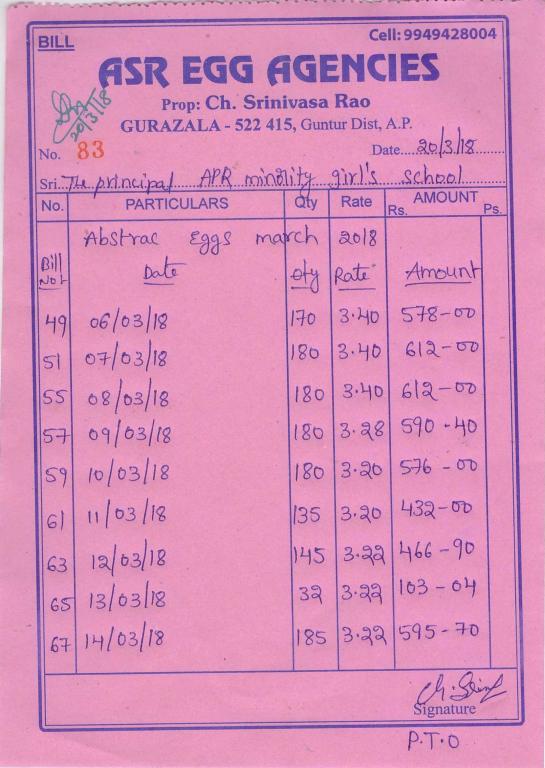 BILL
Cell: 9949428004
ASR EGG AGENCIES
Prop: Ch. Srinivasa Rao
20/3/18
GURAZALA - 522 415, Guntur Dist, A.P.
No. 83 Date 20/3/18
Sri. The principal APR minolity girl's school
No. PARTICULARS Qty Rate AMOUNT
Rs. Ps.
Abstrac Eggs march 2018
Bill No Date Qty Rate Amount
49 06/03/18 170 3.40 578-00
51 07/03/18 180 3.40 612-00
55 08/03/18 180 3.40 612-00
57 09/03/18 180 3.28 590-40
59 10/03/18 180 3.20 576-00
61 11/03/18 135 3.20 432-00
63 12/03/18 145 3.22 466-90
65 13/03/18 32 3.22 103-04
67 14/03/18 185 3.22 595-70
Signature
P.T.O